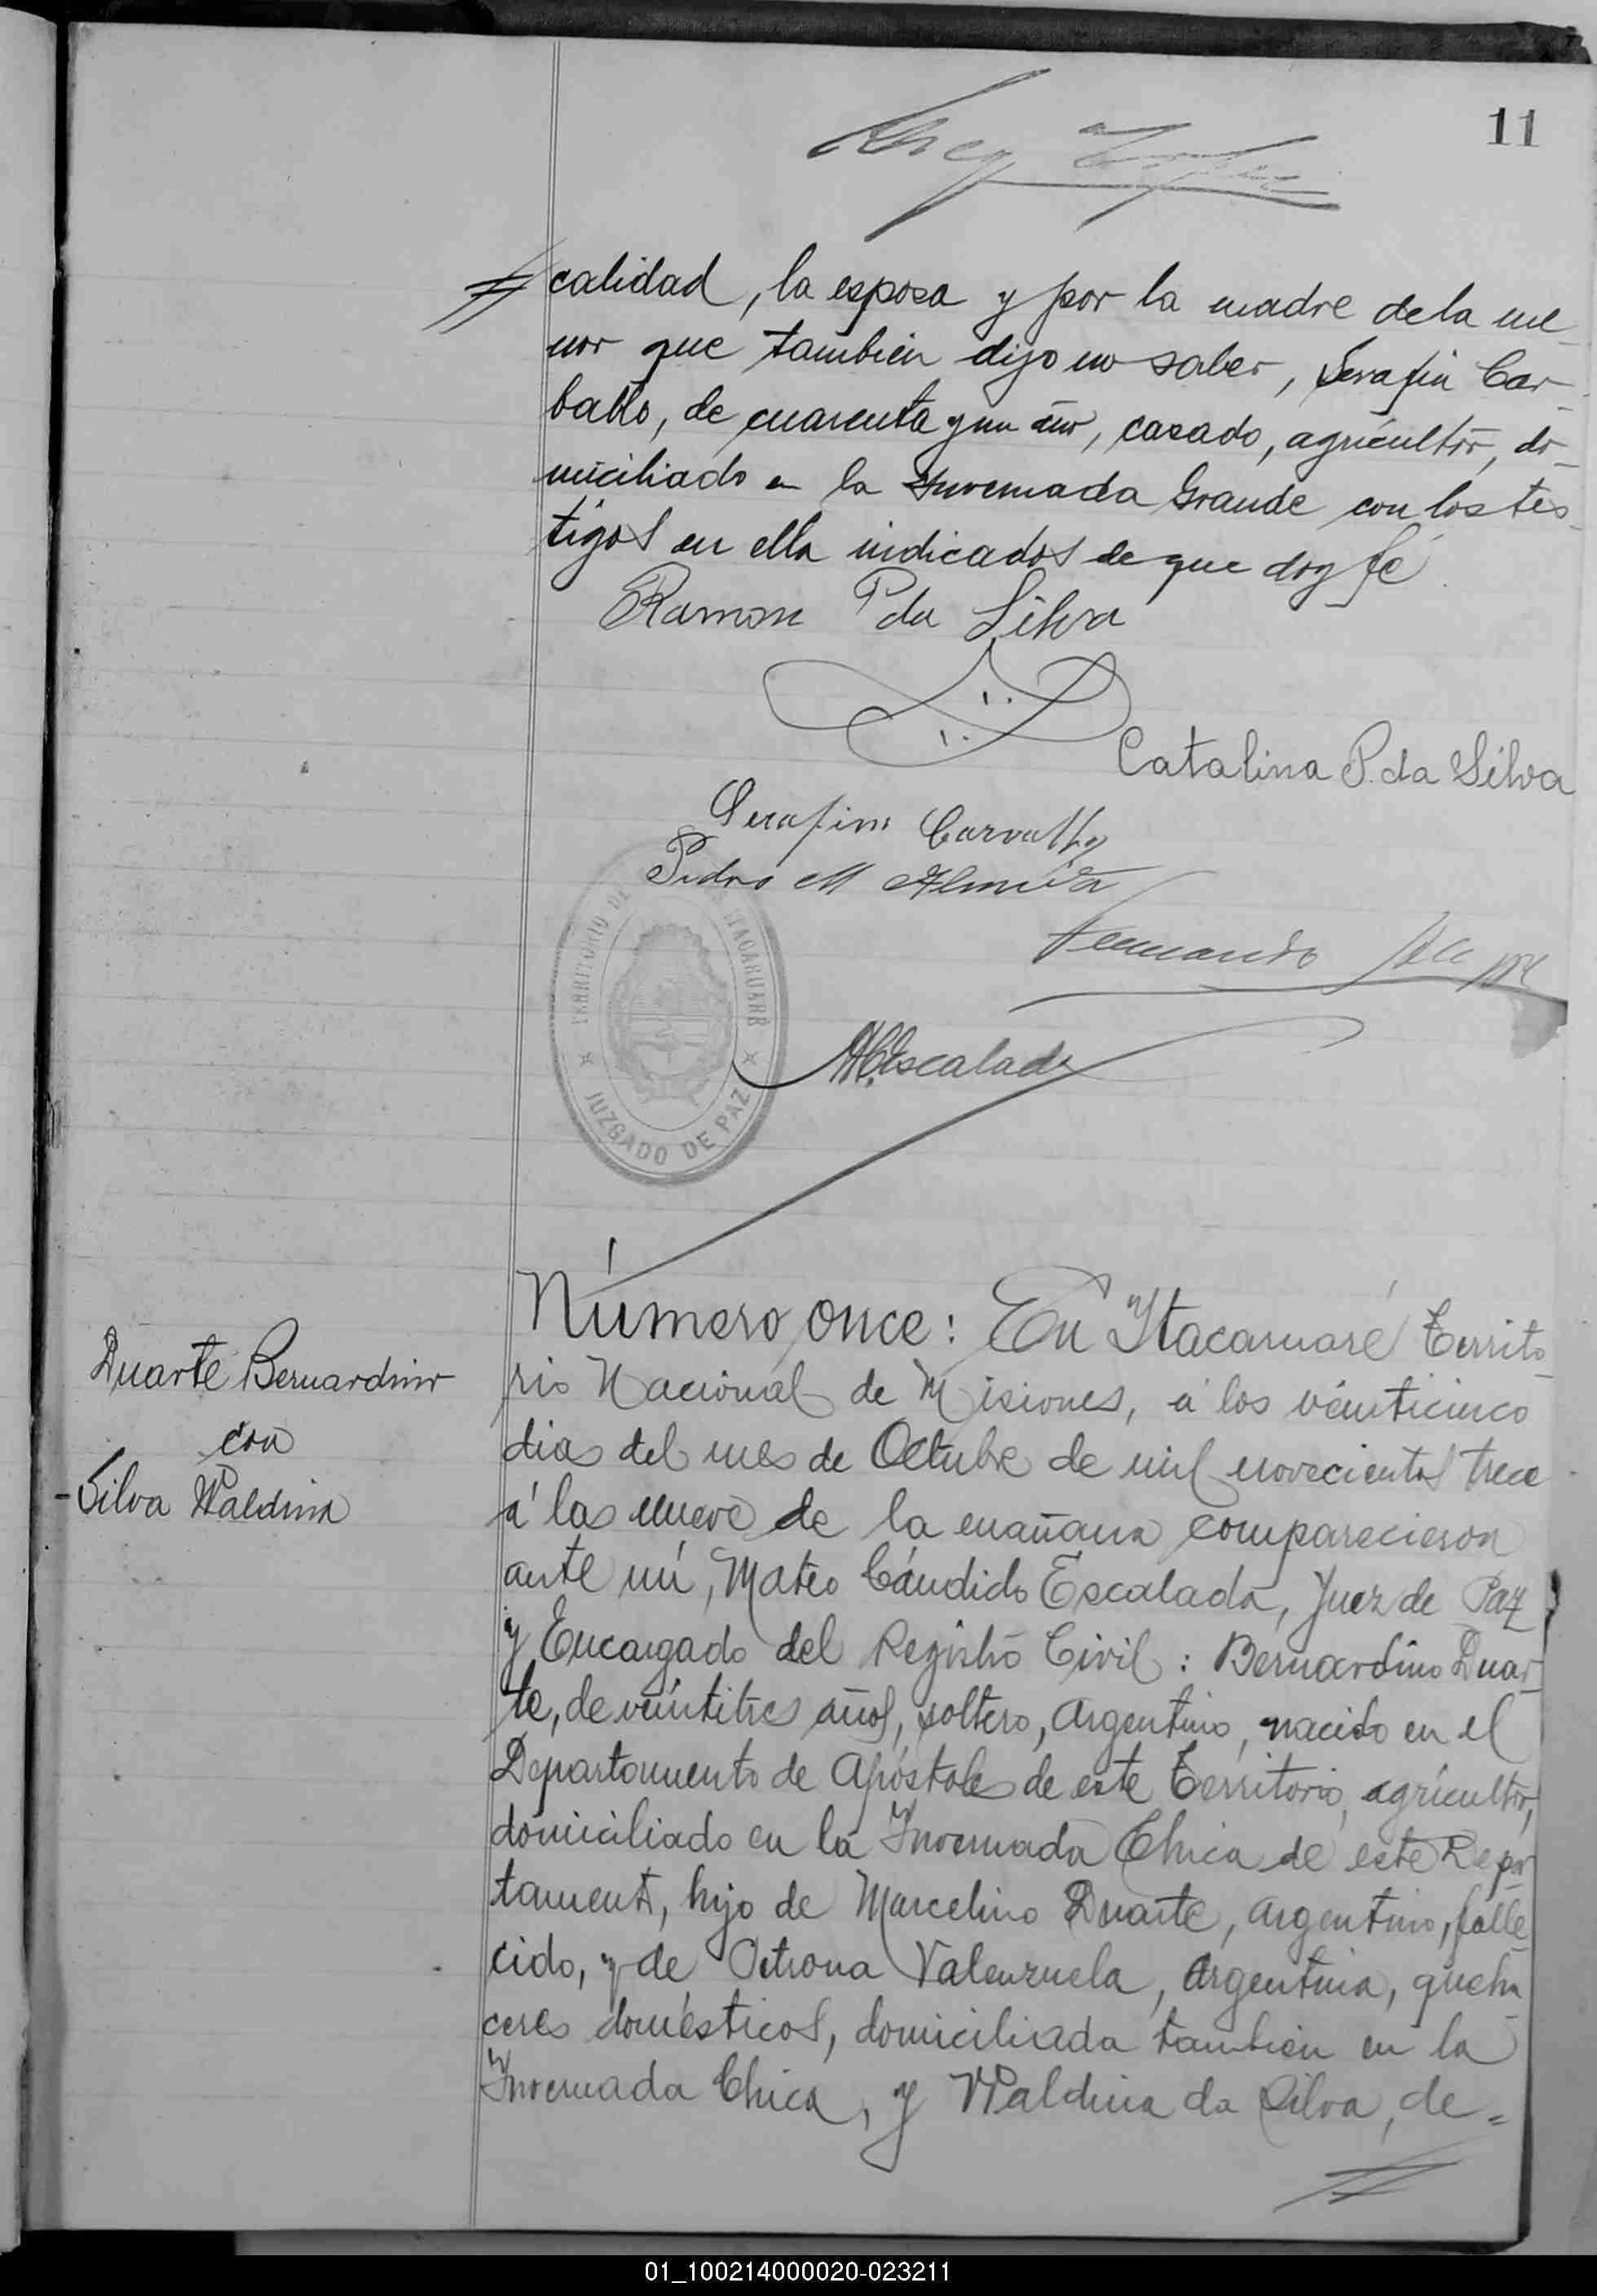 11
calidad, la esposa y por la madre de la me_
nor que tambien dijo no saber, Serafin Car_
ballo, de cuarenta y un año, casado, agricultor, do_
miciliado en la Invernada Grande con los tes_
tigos en ella indicados de que doy fé
Ramon P da Silva
Catalina P. da Silva
Serafim Carvalho
Pedro M Almeida
Fernando
TERRITORIO DE ITACARUARE
JUZGADO DE PAZ
MCEscalada
Número once: En Itacaruaré Territo_
Duarte Bernardino
con
Silva Waldina
rio Nacional de Misiones, á los veinticinco
dias del mes de Octubre de mil novecientos trece
á las nueve de la mañana comparecieron
ante mí, Mateo Cándido Escalada, Juez de Paz
y Encargado del Registro Civil: Bernardino Duar_
te, de veintitres años, soltero, Argentino, nacido en el
Departamento de Apóstoles de este Territorio, agricultor,
domiciliado en la Invernada Chica de este Depar_
tament, hijo de Marcelino Duarte, argentino, falle_
cido, y de Petrona Valenzuela, Argentina, queha_
ceres domésticos, domiciliada tambien en la
Invernada Chica, y Waldina da Silva, de=
01_100214000020-023211